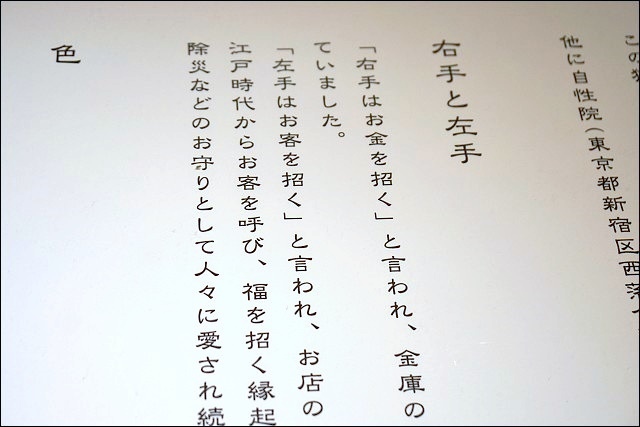 この
他に自性院(東京都新宿区西落
右手と左手
「右手はお金を招く」と言われ、金庫の
ていました。
「左手はお客を招く」と言われ、お店の
江戸時代からお客を呼び、福を招く縁起
除災などのお守りとして人々に愛され続
色